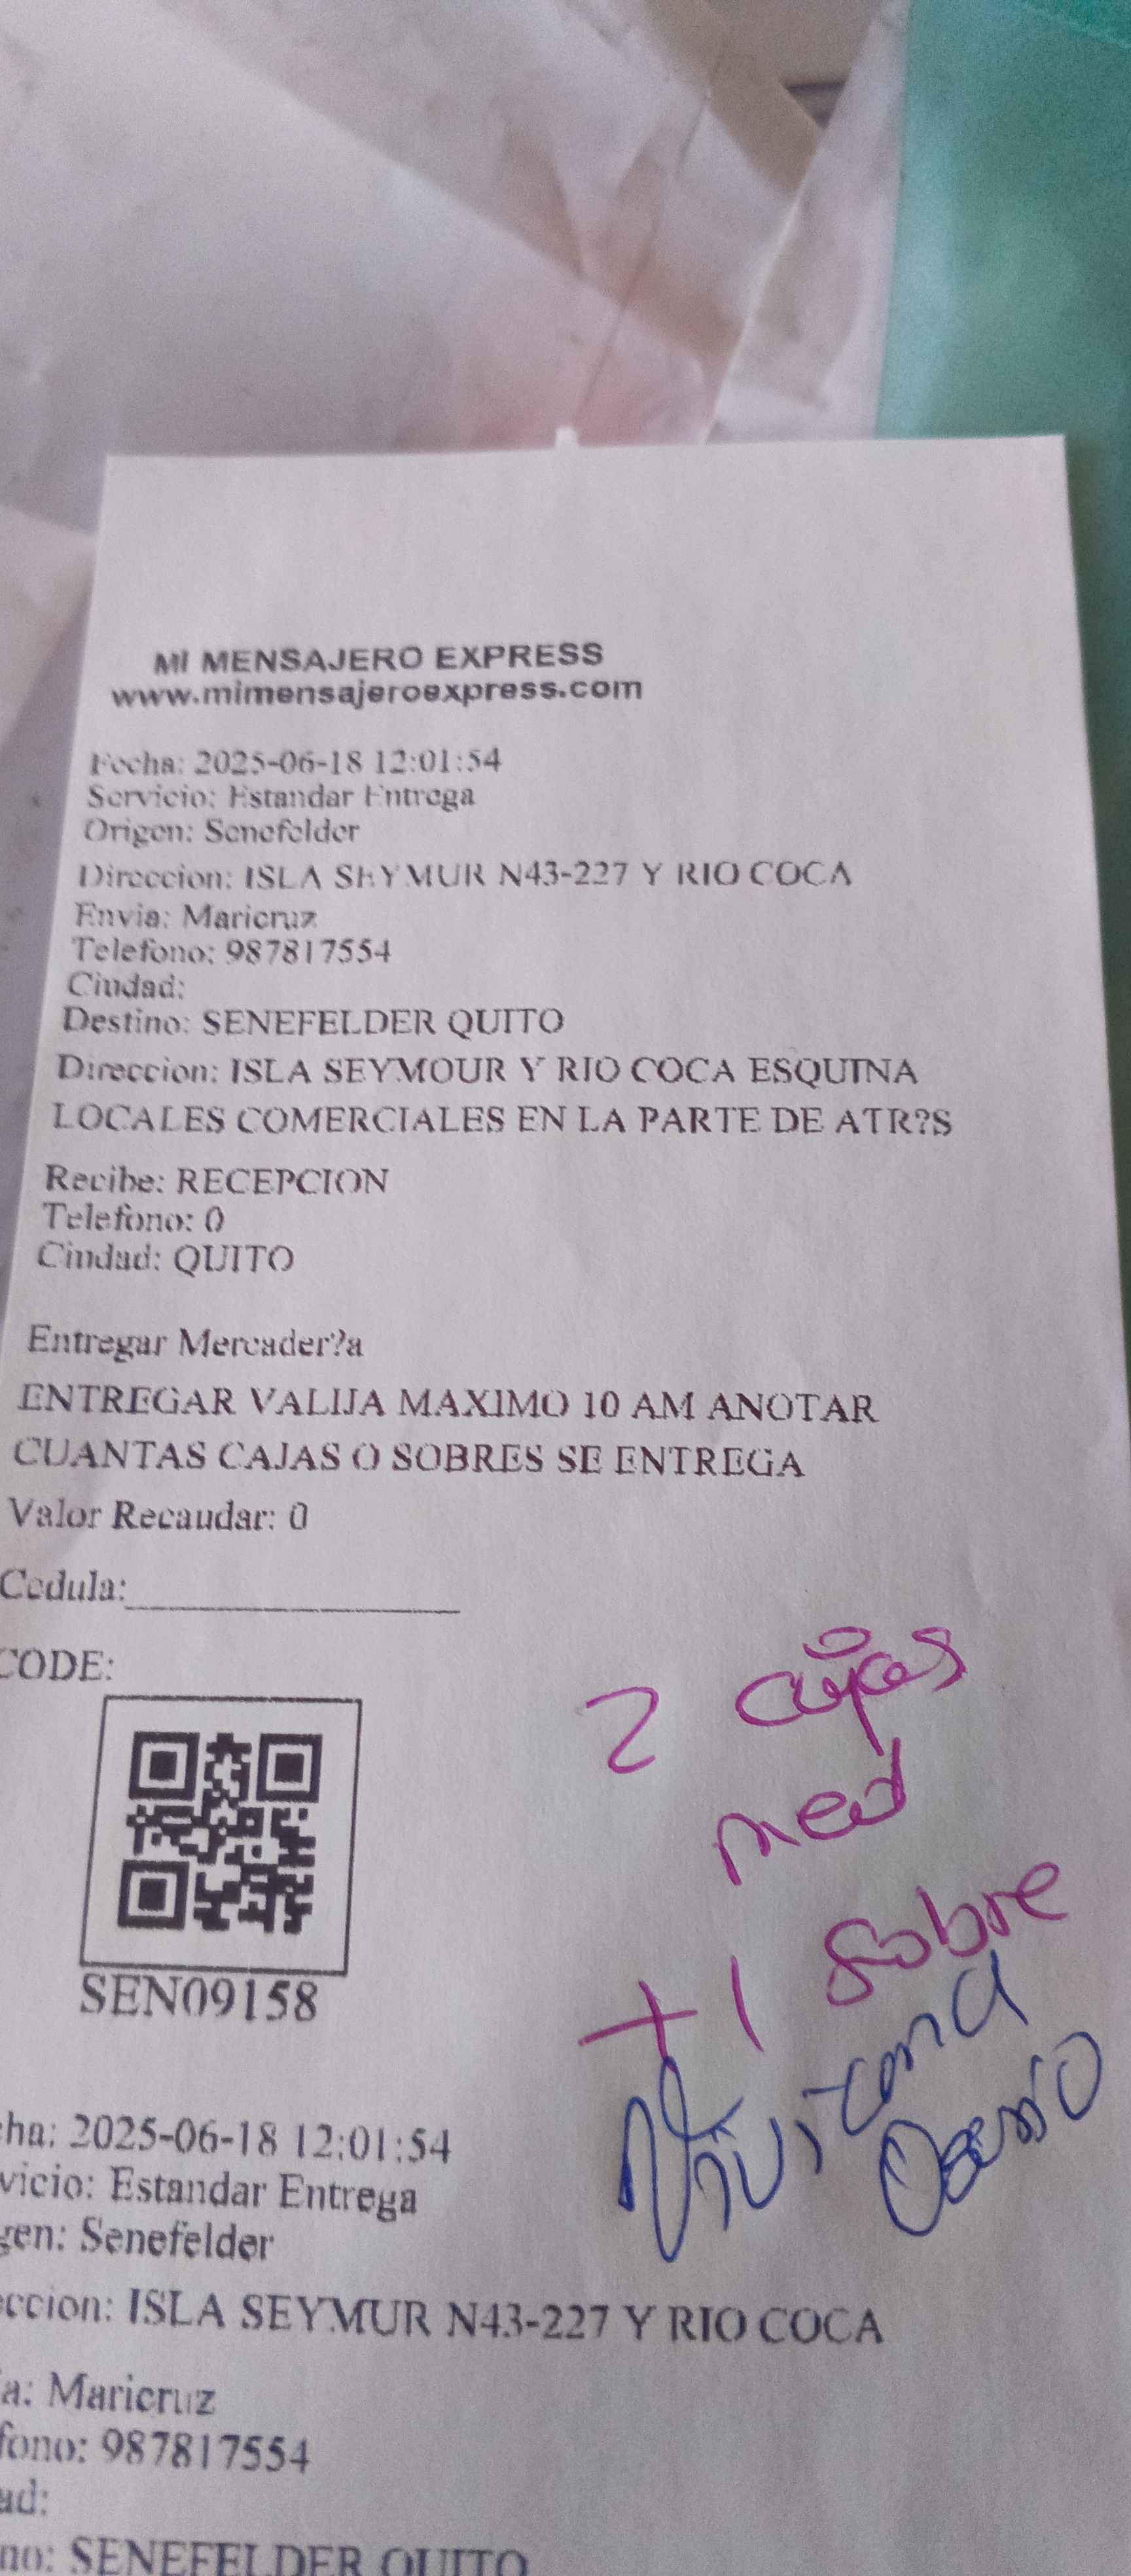 MI MENSAJERO EXPRESS
www.mimensajeroexpress.com
Fecha: 2025-06-18 12:01:54
Servicio: Estandar Entrega
Origen: Senefelder
Direccion: ISLA SEYMUR N43-227 Y RIO COCA
Envia: Maricruz
Telefono: 987817554
Ciudad:
Destino: SENEFELDER QUITO
Direccion: ISLA SEYMOUR Y RIO COCA ESQUINA
LOCALES COMERCIALES EN LA PARTE DE ATR?S
Recibe: RECEPCION
Telefono: 0
Ciudad: QUITO
Entregar Mercader?a
ENTREGAR VALIJA MAXIMO 10 AM ANOTAR
CUANTAS CAJAS O SOBRES SE ENTREGA
Valor Recaudar: 0
Cedula:
CODE:
2 cajas
med
+1 sobre
Viviana
SEN09158
cha: 2025-06-18 12:01:54
vicio: Estandar Entrega
gen: Senefelder
eccion: ISLA SEYMUR N43-227 Y RIO COCA
a: Maricruz
fono: 987817554
ad:
no: SENEFELDER QUITO